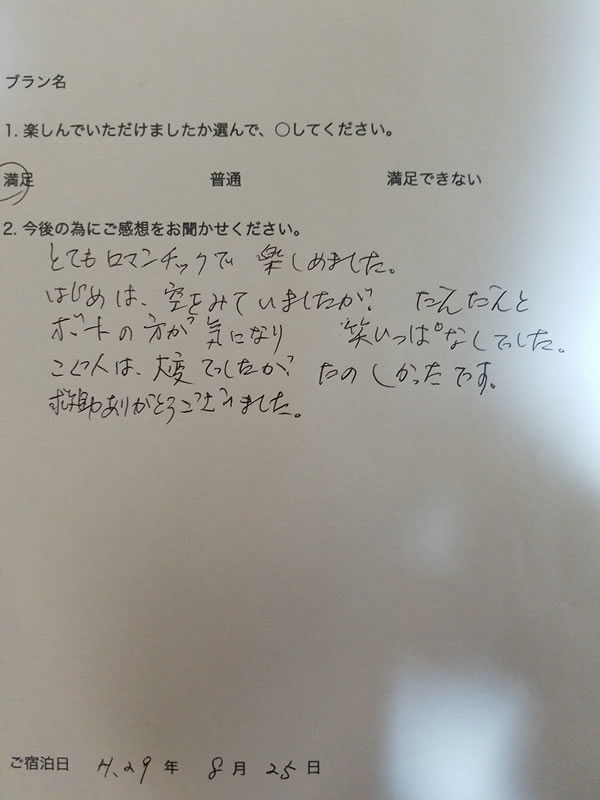 プラン名
1. 楽しんでいただけましたか選んで、○してください。
満足 普通 満足できない
2. 今後の為にご感想をお聞かせください。
とてもロマンチックで 楽しめました。
はじめは、空をみていましたが、だんだんと
ボートの方が気になり 笑いっぱなしでした。
こぐ人は、大変でしたが、たのしかったです。
救助ありがとうございました。
ご宿泊日 H.29 年 8 月 25 日